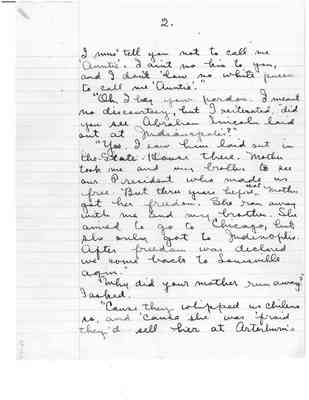 2.
I mus' tell you not to call me
'Auntie'. I ain't no kin to you,
and I don't 'low no white pusson
to call me 'Auntie'."
"Oh, I beg your pardon. I meant
no discourtesy, but I reiterated, did
you see Abraham Lincoln laid
out at Indianapolis?"
"Yes, I saw him laid out in
the State House there. Mother
took me and my brother to see
our President who made us
free. But three years befo' that Mother
got her freedom. She ran away
with me and my brother. She
aimed to go to Chicago, but
she only got to Indinoplis.
After freedom was declared
we come back to Louisville
agin."
"Why did your mother run away?"
I asked.
"'Cause they whipped us chilens
so, and 'cause she was 'fraid
they'd sell her at Arterburn's